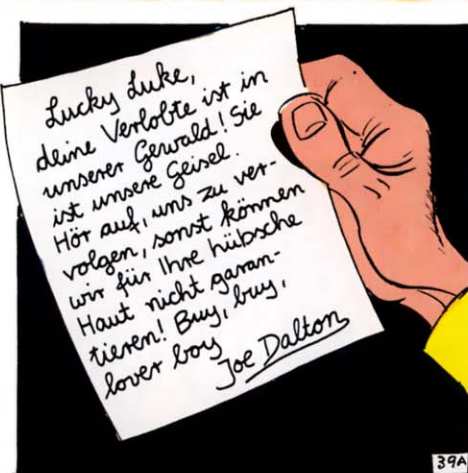 Lucky Luke,
deine Verlobte ist in
unserer Gewald! Sie
ist unsere Geisel.
Hör auf, uns zu ver-
volgen, sonst können
wir für Ihre hübsche
Haut nicht garan-
tieren! Buy, buy,
lover boy
Joe Dalton
39A